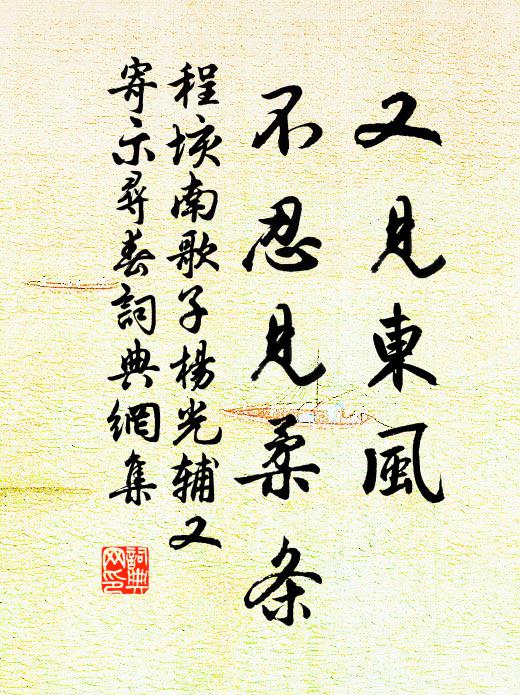 又見東風
不忍見柔条
程垓南歌子楊光輔又
寄示尋春詞典網集
詞典
网印